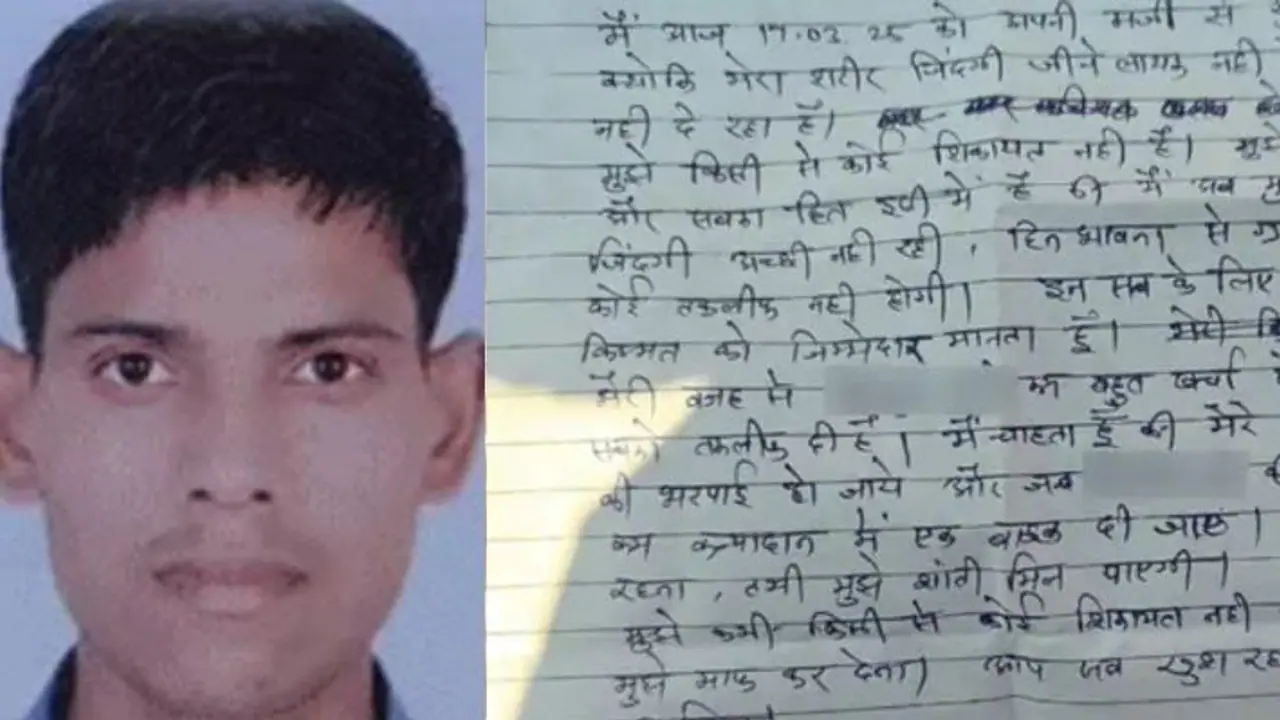 मैं आज 17.03.25 को अपनी मर्जी से
क्योकि मेरा शरीर जिंदगी जीने लायक नही
नही दे रहा है।
मुझे किसी से कोई शिकायत नही है। मुझे
और सबका हित इसी में है की मैं अब
जिंदगी अच्छी नही रही, हिन भावना से
कोई तकलीफ नही होगी। इन सब के लिए
किस्मत को जिम्मेदार मानता हूँ। मेरी
मेरी वजह से का बहुत खर्चा
सबको तकलीफ दी है। मैं चाहता हूँ की मेरे
की भरपाई हो जाये और जब
का कन्यादान में एक बाइक दी जाए।
रहना, तभी मुझे शांती मिल पाएगी।
मुझे कभी किसी से कोई शिकायत नही
मुझे माफ कर देना। आप सब खुश